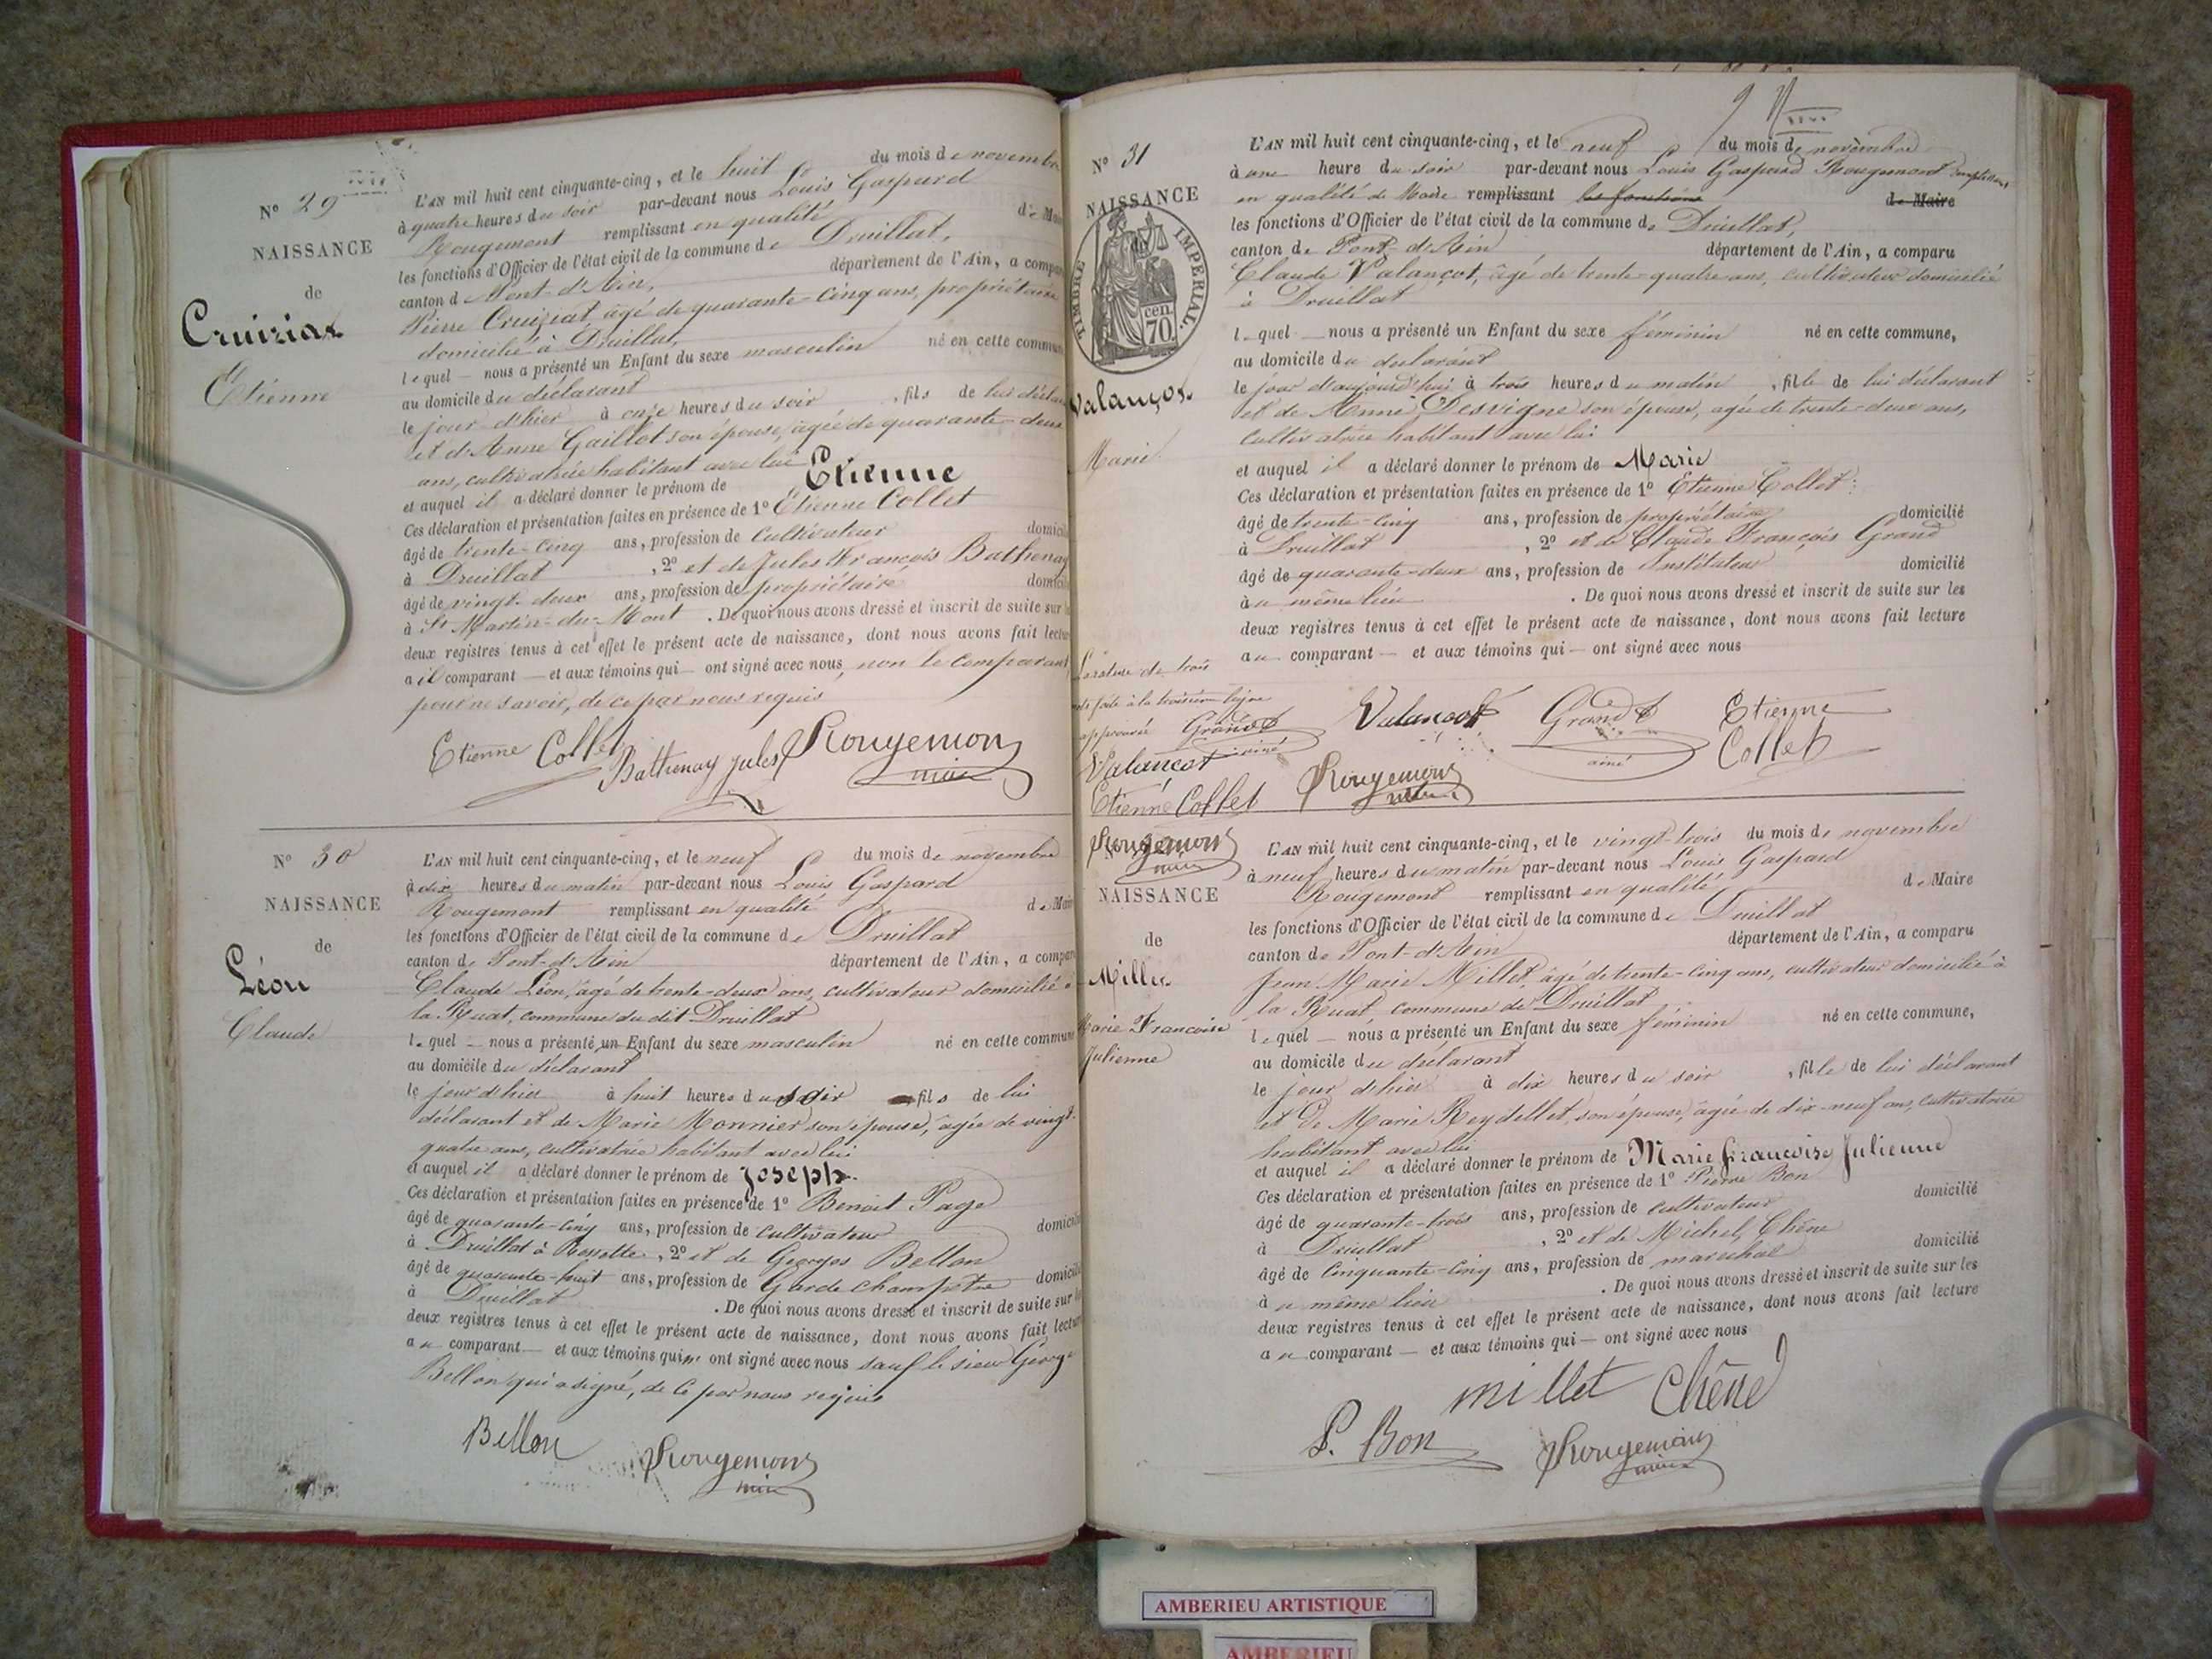 N° 29
NAISSANCE
de
Cruiziat
Etienne
L'AN mil huit cent cinquante-cinq, et le huit du mois de novembre
à quatre heures du soir par-devant nous Louis Gaspard
Rougemont remplissant en qualité de Ma
les fonctions d'Officier de l'état civil de la commune de Druillat,
canton de Pont-d'Ain, département de l'Ain, a compa
Pierre Cruiziat âgé de quarante-cinq ans, propriétaire
domicilié à Druillat,
lequel — nous a présenté un Enfant du sexe masculin né en cette commun
au domicile du déclarant
le jour d'hier à onze heures du soir , fils de lui déclar
et d'Anne Gaillot son épouse, âgée de quarante-deux
ans, cultivatrice habitant avec lui
et auquel il a déclaré donner le prénom de Etienne
Ces déclaration et présentation faites en présence de 1° Etienne Collet
âgé de trente-cinq ans, profession de cultivateur domicil
à Druillat , 2° et de Jules François Bathenay
âgé de vingt-deux ans, profession de propriétaire domicil
à St Martin-du-Mont . De quoi nous avons dressé et inscrit de suite sur l
deux registres tenus à cet effet le présent acte de naissance, dont nous avons fait lectu
a il comparant — et aux témoins qui — ont signé avec nous, non le comparant
pour ne savoir, de ce par nous requis
Etienne Collet Bathenay Jules Rougemont
maire
N° 30
NAISSANCE
de
Léon
Claude
L'AN mil huit cent cinquante-cinq, et le neuf du mois de novembre
à dix heures du matin par-devant nous Louis Gaspard
Rougemont remplissant en qualité de Mair
les fonctions d'Officier de l'état civil de la commune de Druillat
canton de Pont-d'Ain département de l'Ain, a compar
Claude Léon, âgé de trente-deux ans, cultivateur domicilié à
la Ruat, commune du dit Druillat
lequel — nous a présenté un Enfant du sexe masculin né en cette commune
au domicile du déclarant
le jour d'hier à huit heures du soir fils de lui
déclarant et de Marie Monnier son épouse, âgée de vingt-
quatre ans, cultivatrice habitant avec lui
et auquel il a déclaré donner le prénom de Joseph
Ces déclaration et présentation faites en présence de 1° Benoit Page
âgé de quarante-cinq ans, profession de cultivateur domicilié
à Druillat à Rossette, 2° et de Georges Bellon
âgé de quarante-huit ans, profession de Garde champêtre domicilié
à Druillat . De quoi nous avons dressé et inscrit de suite sur l
deux registres tenus à cet effet le présent acte de naissance, dont nous avons fait lectur
au comparant — et aux témoins qui ont signé avec nous sauf le sieur George
Bellon qui a signé, de ce par nous requis
Bellon Rougemont
maire
9
N° 31
NAISSANCE
TIMBRE IMPERIAL.
70 cen
Valançot
Marie
L'AN mil huit cent cinquante-cinq, et le neuf du mois de novembre
à une heure du soir par-devant nous Louis Gaspard Rougemont
en qualité de Maire remplissant les fonctions de Maire
les fonctions d'Officier de l'état civil de la commune de Druillat,
canton de Pont-d'Ain , département de l'Ain, a comparu
Claude Valançot, âgé de trente-quatre ans, cultivateur domicilié
à Druillat
lequel — nous a présenté un Enfant du sexe féminin né en cette commune,
au domicile du déclarant
le jour d'aujourd'hui à trois heures du matin , fille de lui déclarant
et de Anne Desvigne son épouse, agée de trente-deux ans,
cultivatrice habitant avec lui
et auquel il a déclaré donner le prénom de Marie
Ces déclaration et présentation faites en présence de 1° Etienne Collet
âgé de trente-cinq ans, profession de propriétaire domicilié
à Druillat , 2° et de Claude François Grand
âgé de quarante-deux ans, profession de Instituteur domicilié
au même lieu . De quoi nous avons dressé et inscrit de suite sur les
deux registres tenus à cet effet le présent acte de naissance, dont nous avons fait lecture
au comparant — et aux témoins qui — ont signé avec nous
La rature de trois
à la troisième ligne
approuvée Grand
ainé
Valancot
Etienne Collet
Rougemont
maire
Valancot Grand Etienne
ainé Collet
Rougemont
maire
NAISSANCE
de
Millet
Marie Françoise
Julienne
L'AN mil huit cent cinquante-cinq, et le vingt-trois du mois de novembre
à neuf heures du matin par-devant nous Louis Gaspard
Rougemont remplissant en qualité de Maire
les fonctions d'Officier de l'état civil de la commune de Druillat
canton de Pont-d'Ain département de l'Ain, a comparu
Jean Marie Millet, âgé de trente-cinq ans, cultivateur domicilié à
la Ruat, commune de Druillat
lequel — nous a présenté un Enfant du sexe féminin né en cette commune,
au domicile du déclarant
le jour d'hier à dix heures du soir , fille de lui déclarant
et De Marie Reydellet, son épouse, âgée de dix-neuf ans, cultivatrice
habitant avec lui
et auquel il a déclaré donner le prénom de Marie Françoise Julienne
Ces déclaration et présentation faites en présence de 1° Pierre Bon
âgé de quarante-trois ans, profession de cultivateur domicilié
à Druillat , 2° et de Michel Chêne
âgé de cinquante-cinq ans, profession de maréchal domicilié
au même lieu . De quoi nous avons dressé et inscrit de suite sur les
deux registres tenus à cet effet le présent acte de naissance, dont nous avons fait lecture
au comparant — et aux témoins qui — ont signé avec nous
millet Chêne
P. Bon Rougemont
maire
AMBERIEU ARTISTIQUE
AMBERIEU